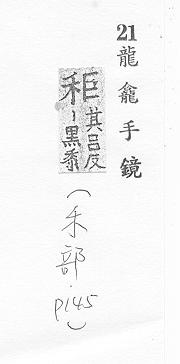 21 龍龕手鏡
秬其吕反〻黑黍
(禾部.p145)